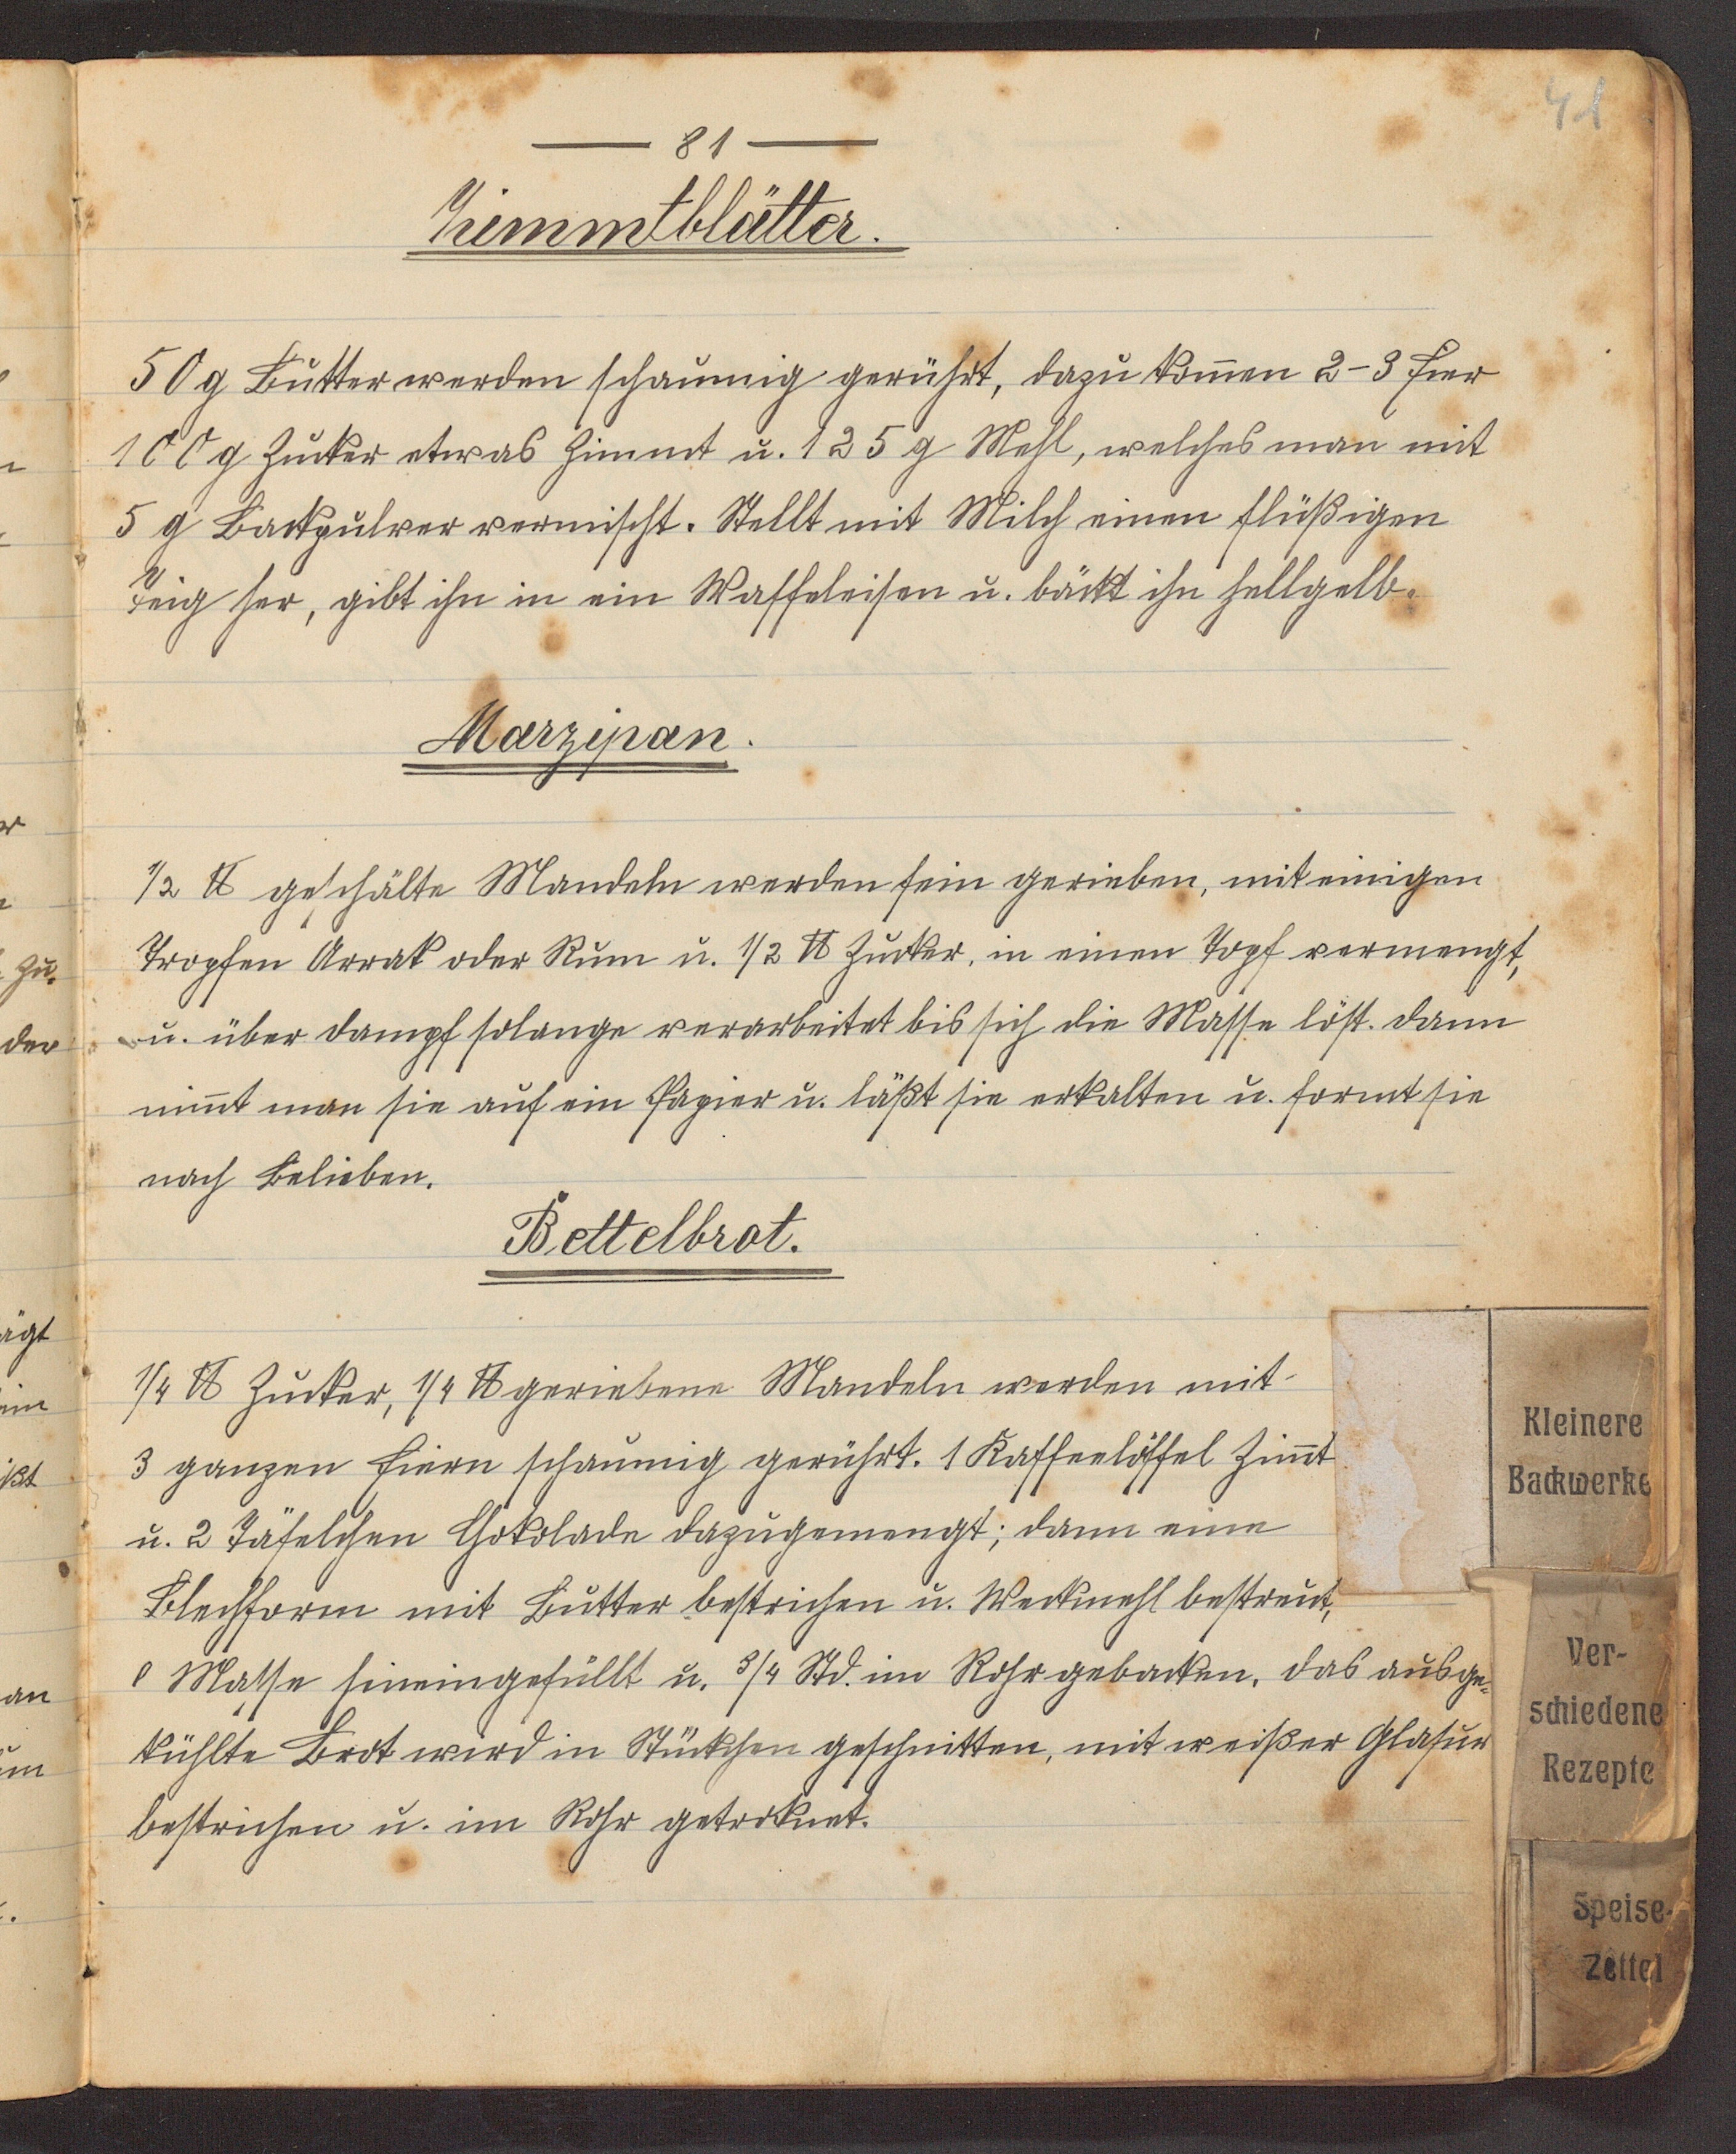 41
— 81 —
Zimmtblätter.
50 g Butter werden schaumig gerührt, dazu kom̄en 2-3 Eier
100 g Zucker etwas Zimmt u. 125 g Mehl, welches man mit
5 g Backpulver vermischt. Stellt mit Milch einen flüßigen
Teig her, gibt ihn in ein Waffeleisen u. bäckt ihn hellgelb.
Marzipan.
1/2 ℔ geschälte Mandeln werden fein gerieben, mit einigen
Tropfen Arrak oder Rum u. 1/2 ℔ Zucker, in einen Topf vermengt,
u. über Dampf solange verarbeitet bis sich die Masse löst. Dann
nim̄t man sie auf ein Papier u. läßt sie erkalten u. formt sie
nach Belieben.
Bettelbrot.
1/4 ℔ Zucker, 1/4 ℔ geriebene Mandeln werden mit
3 ganzen Eiern schaumig gerührt. 1 Kaffeelöffel Zim̄t
u. 2 Täfelchen Chokolade dazugemengt; dann eine
Blechform mit Butter bestrichen u. Weckmehl bestreut,
Masse hineingefüllt u. 3/4 Std. im Rohr gebacken. Das ausge-
kühlte Brot wird in Stückchen geschnitten, mit weißer Glasur
bestrichen u. im Rohr getrocknet.
Kleinere
Backwerke
Ver-
schiedene
Rezepte
Speise-
Zettel
zu.
der
ägt
ißt
an